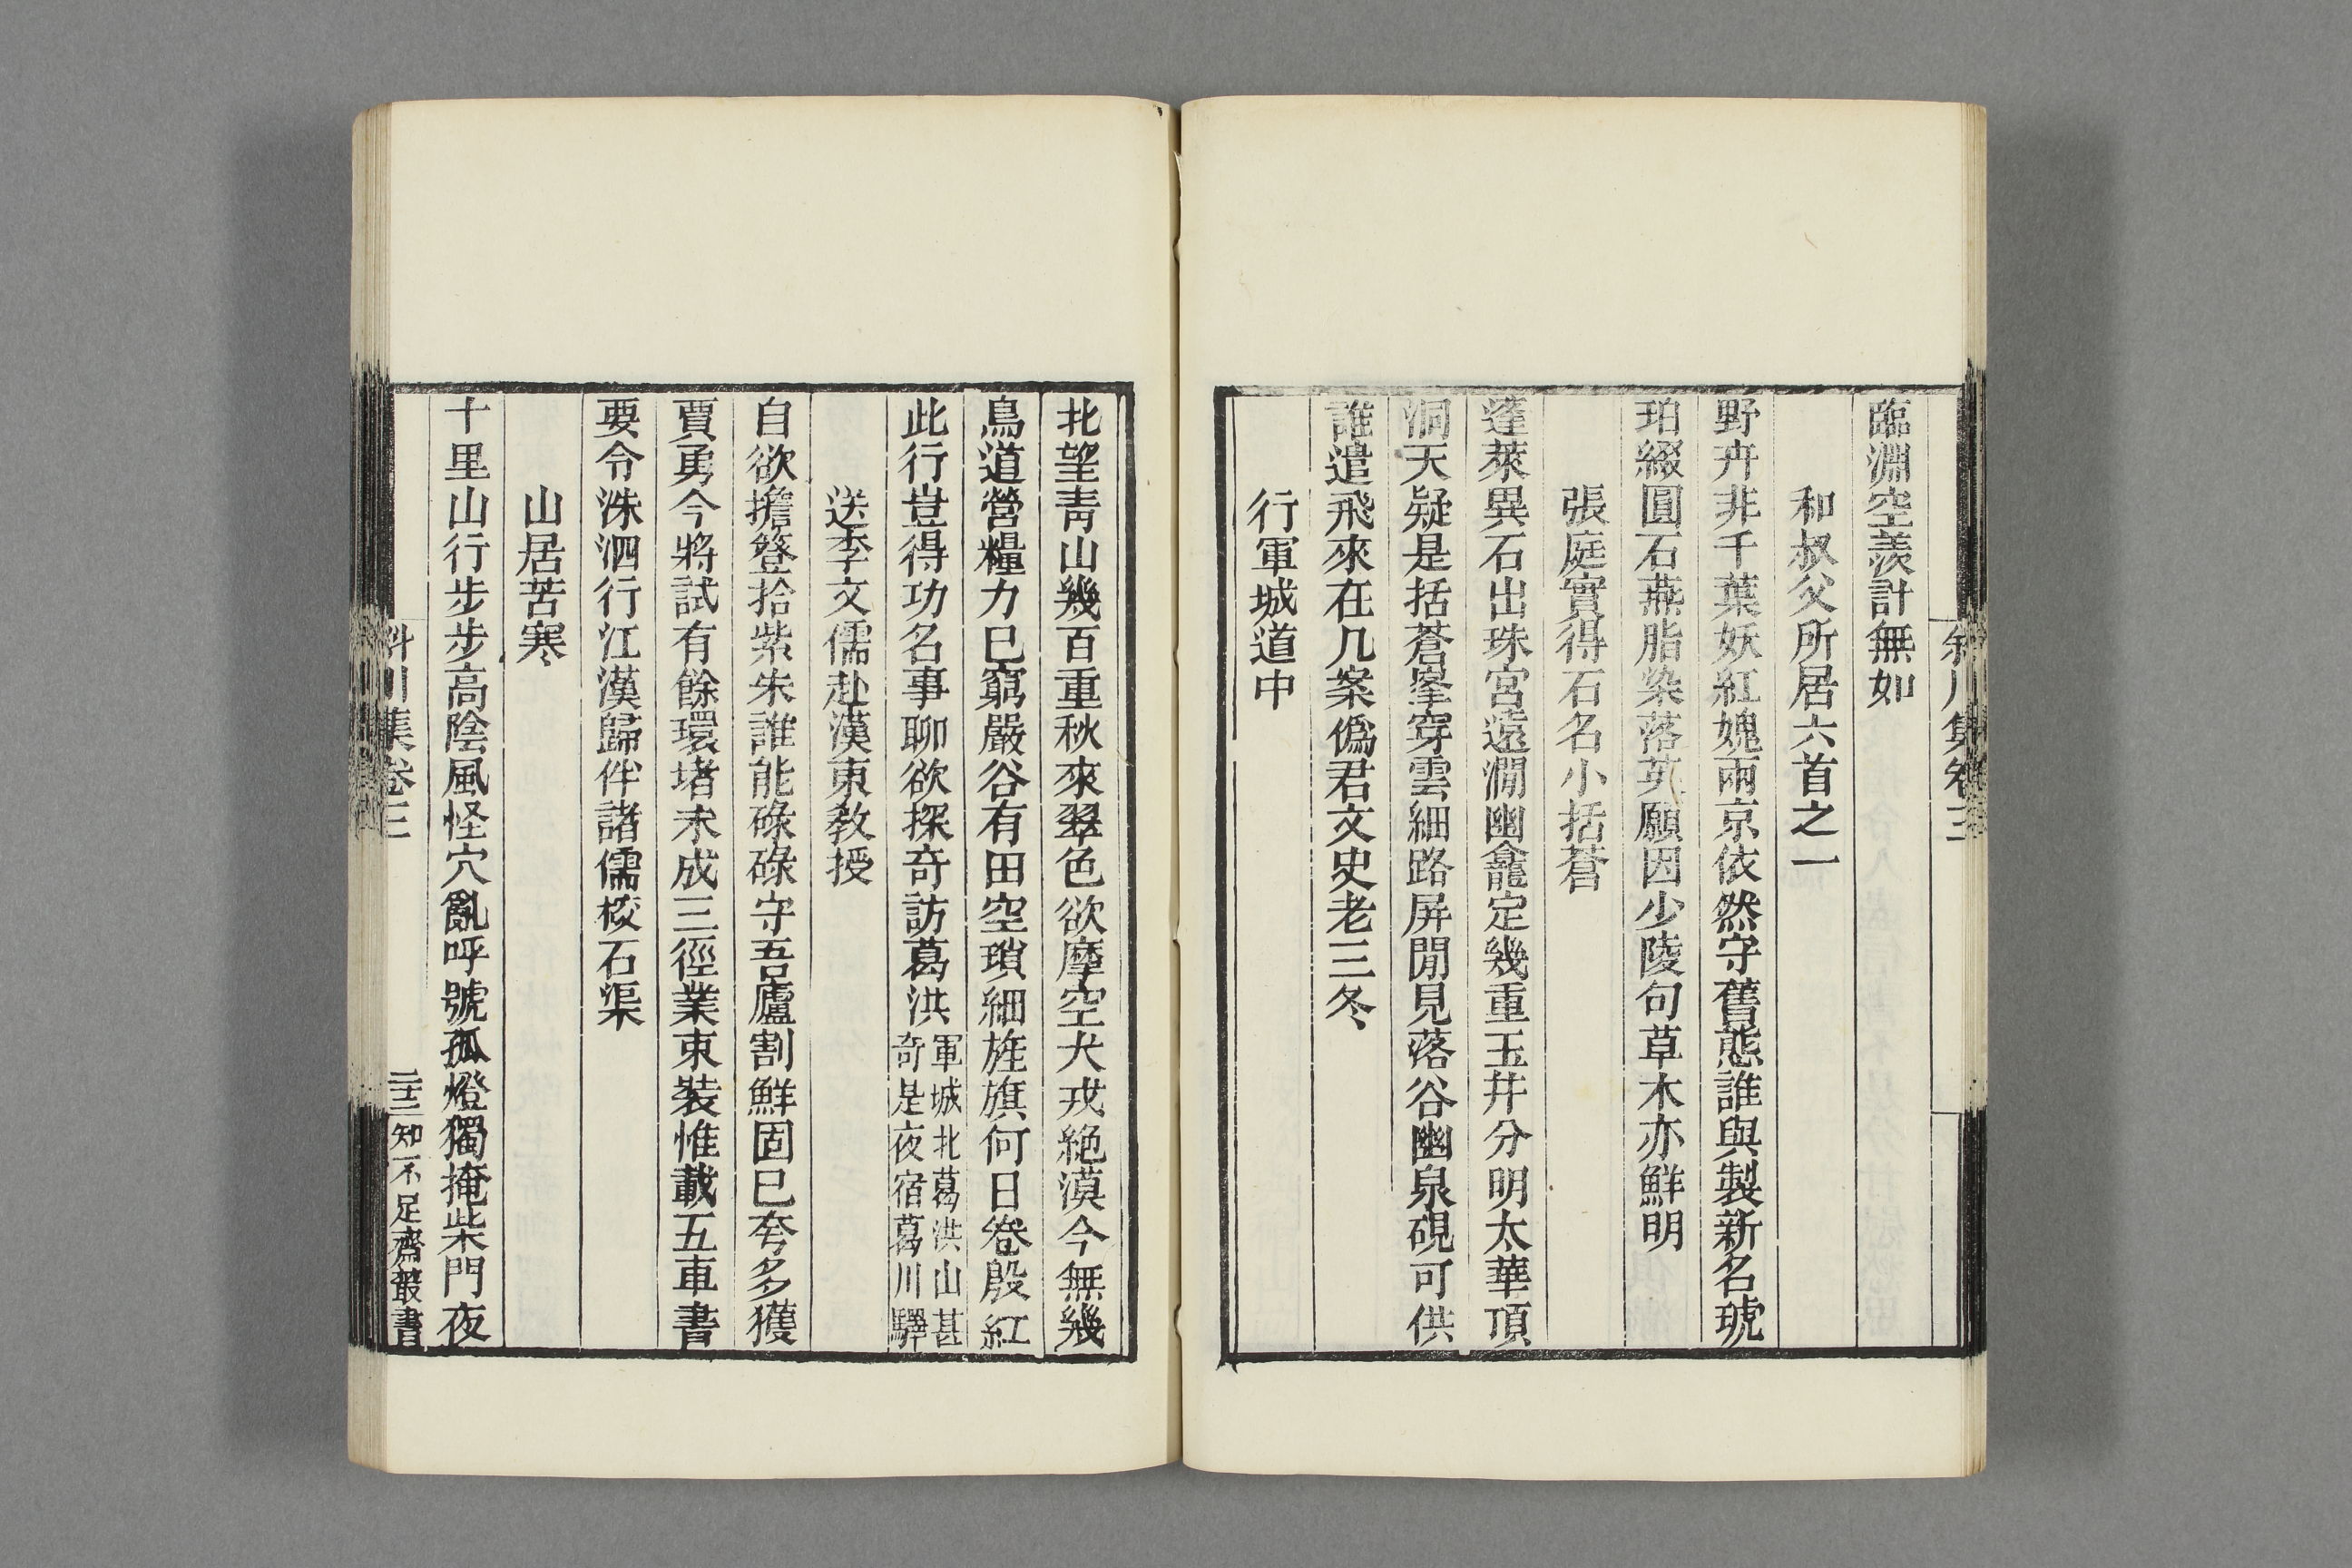 臨淵空羨計無如
和叔父所居六首之一
野卉非千葉妖紅媿兩京依然守舊態誰與製新名琥
珀綴圓石燕脂染落英願因少陵句草木亦鮮明
張庭實得石名小括蒼
蓬萊異石出珠宮遠澗幽龕定幾重玉井分明太華頂
洞天疑是括蒼峯穿雲細路屏閒見落谷幽泉硯可供
誰遣飛來在几案僞君文史老三冬
行軍城道中
北望靑山幾百重秋來翠色欲摩空犬戎絶漠今無幾
鳥道營糧力已窮嚴谷有田空瑣細旌旗何日卷殷紅
此行豈得功名事聊欲探奇訪葛洪軍城北葛洪山甚
奇是夜宿葛川驛
送李文儒赴漢東敎授
自欲擔簦拾紫朱誰能碌碌守吾廬割鮮固已夸多獲
賈勇今將試有餘環堵未成三徑業東裝惟載五車書
要令洙泗行江漢歸伴諸儒校石渠
山居苦寒
十里山行步步高陰風怪穴亂呼號孤燈獨掩柴門夜
斜川集卷三
二十三
知不足齋叢書